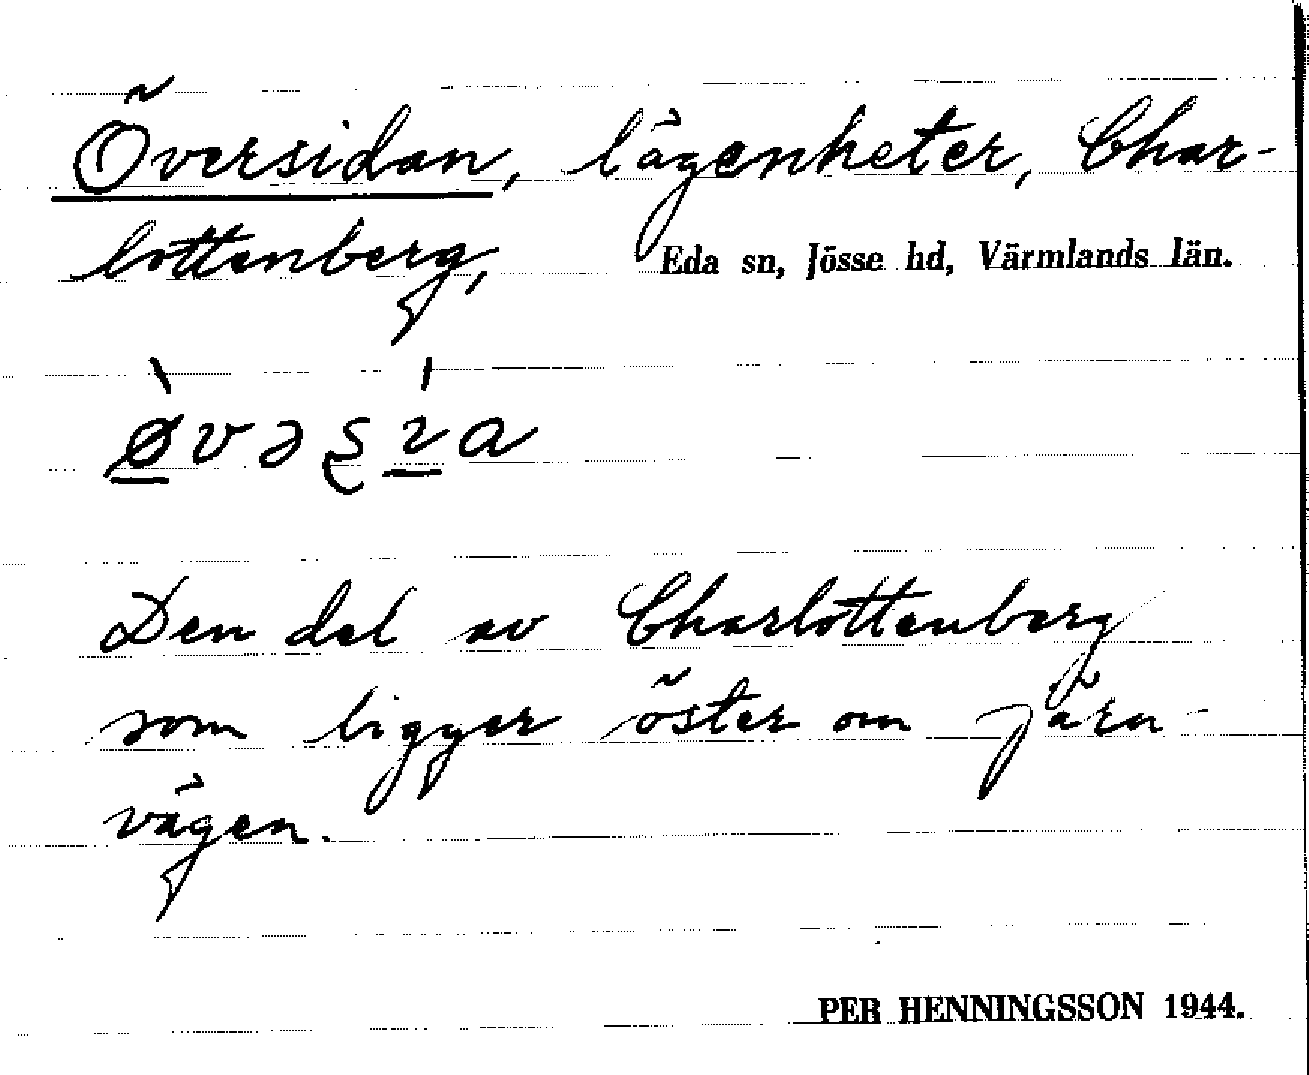 Översidan, lägenheter, Char-
lottenberg, Eda sn, Jösse hd, Värmlands län.
ø̀vəʂɩ́a
Den del av Charlottenberg
som ligger öster om järn-
vägen.
PER HENNINGSSON 1944.